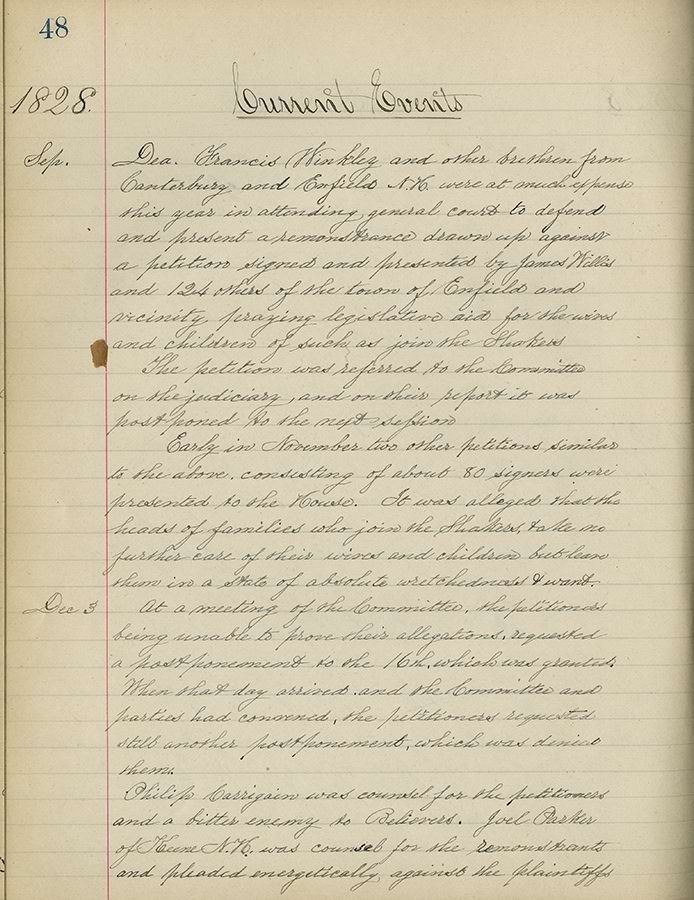 48
1828.
Current Events
Sep.
Dea. Francis Winkley and other brethren from
Canterbury and Enfield N.H. were at much expense
this year in attending general court to defend
and present a remonstrance drawn up against
a petition signed and presented by James Willis
and 124 others of the town of Enfield and
vicinity, praying legislative aid for the wives
and children of such as join the Shakers
The petition was referred to the Committee
on the judiciary, and on their report it was
postponed to the next session
Early in November two other petitions similar
to the above, consisting of about 80 signers were
presented to the House. It was alleged that the
heads of families who join the Shakers, take no
further care of their wives and children but leave
them in a state of absolute wretchedness & want.
Dec 3
At a meeting of the Committee, the petitioners
being unable to prove their allegations, requested
a postponement to the 16th. which was granted.
When that day arrived and the Committee and
parties had convened, the petitioners requested
still another postponement, which was denied
them.
Philip Carrigain was counsel for the petitioners
and a bitter enemy to Believers. Joel Parker
of Keene N.H. was counsel for the remonstrants
and pleaded energetically against the plaintiffs